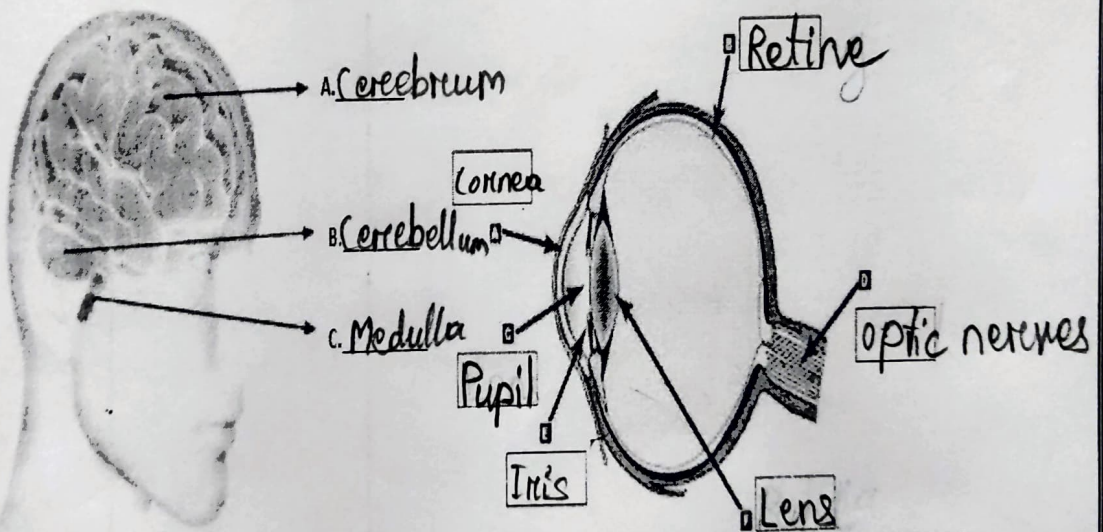 A. Cereebreum
B. Cerrebellum
C. Medulla
Retine
Cornea
Pupil
Iris
Lens
Optic nerves